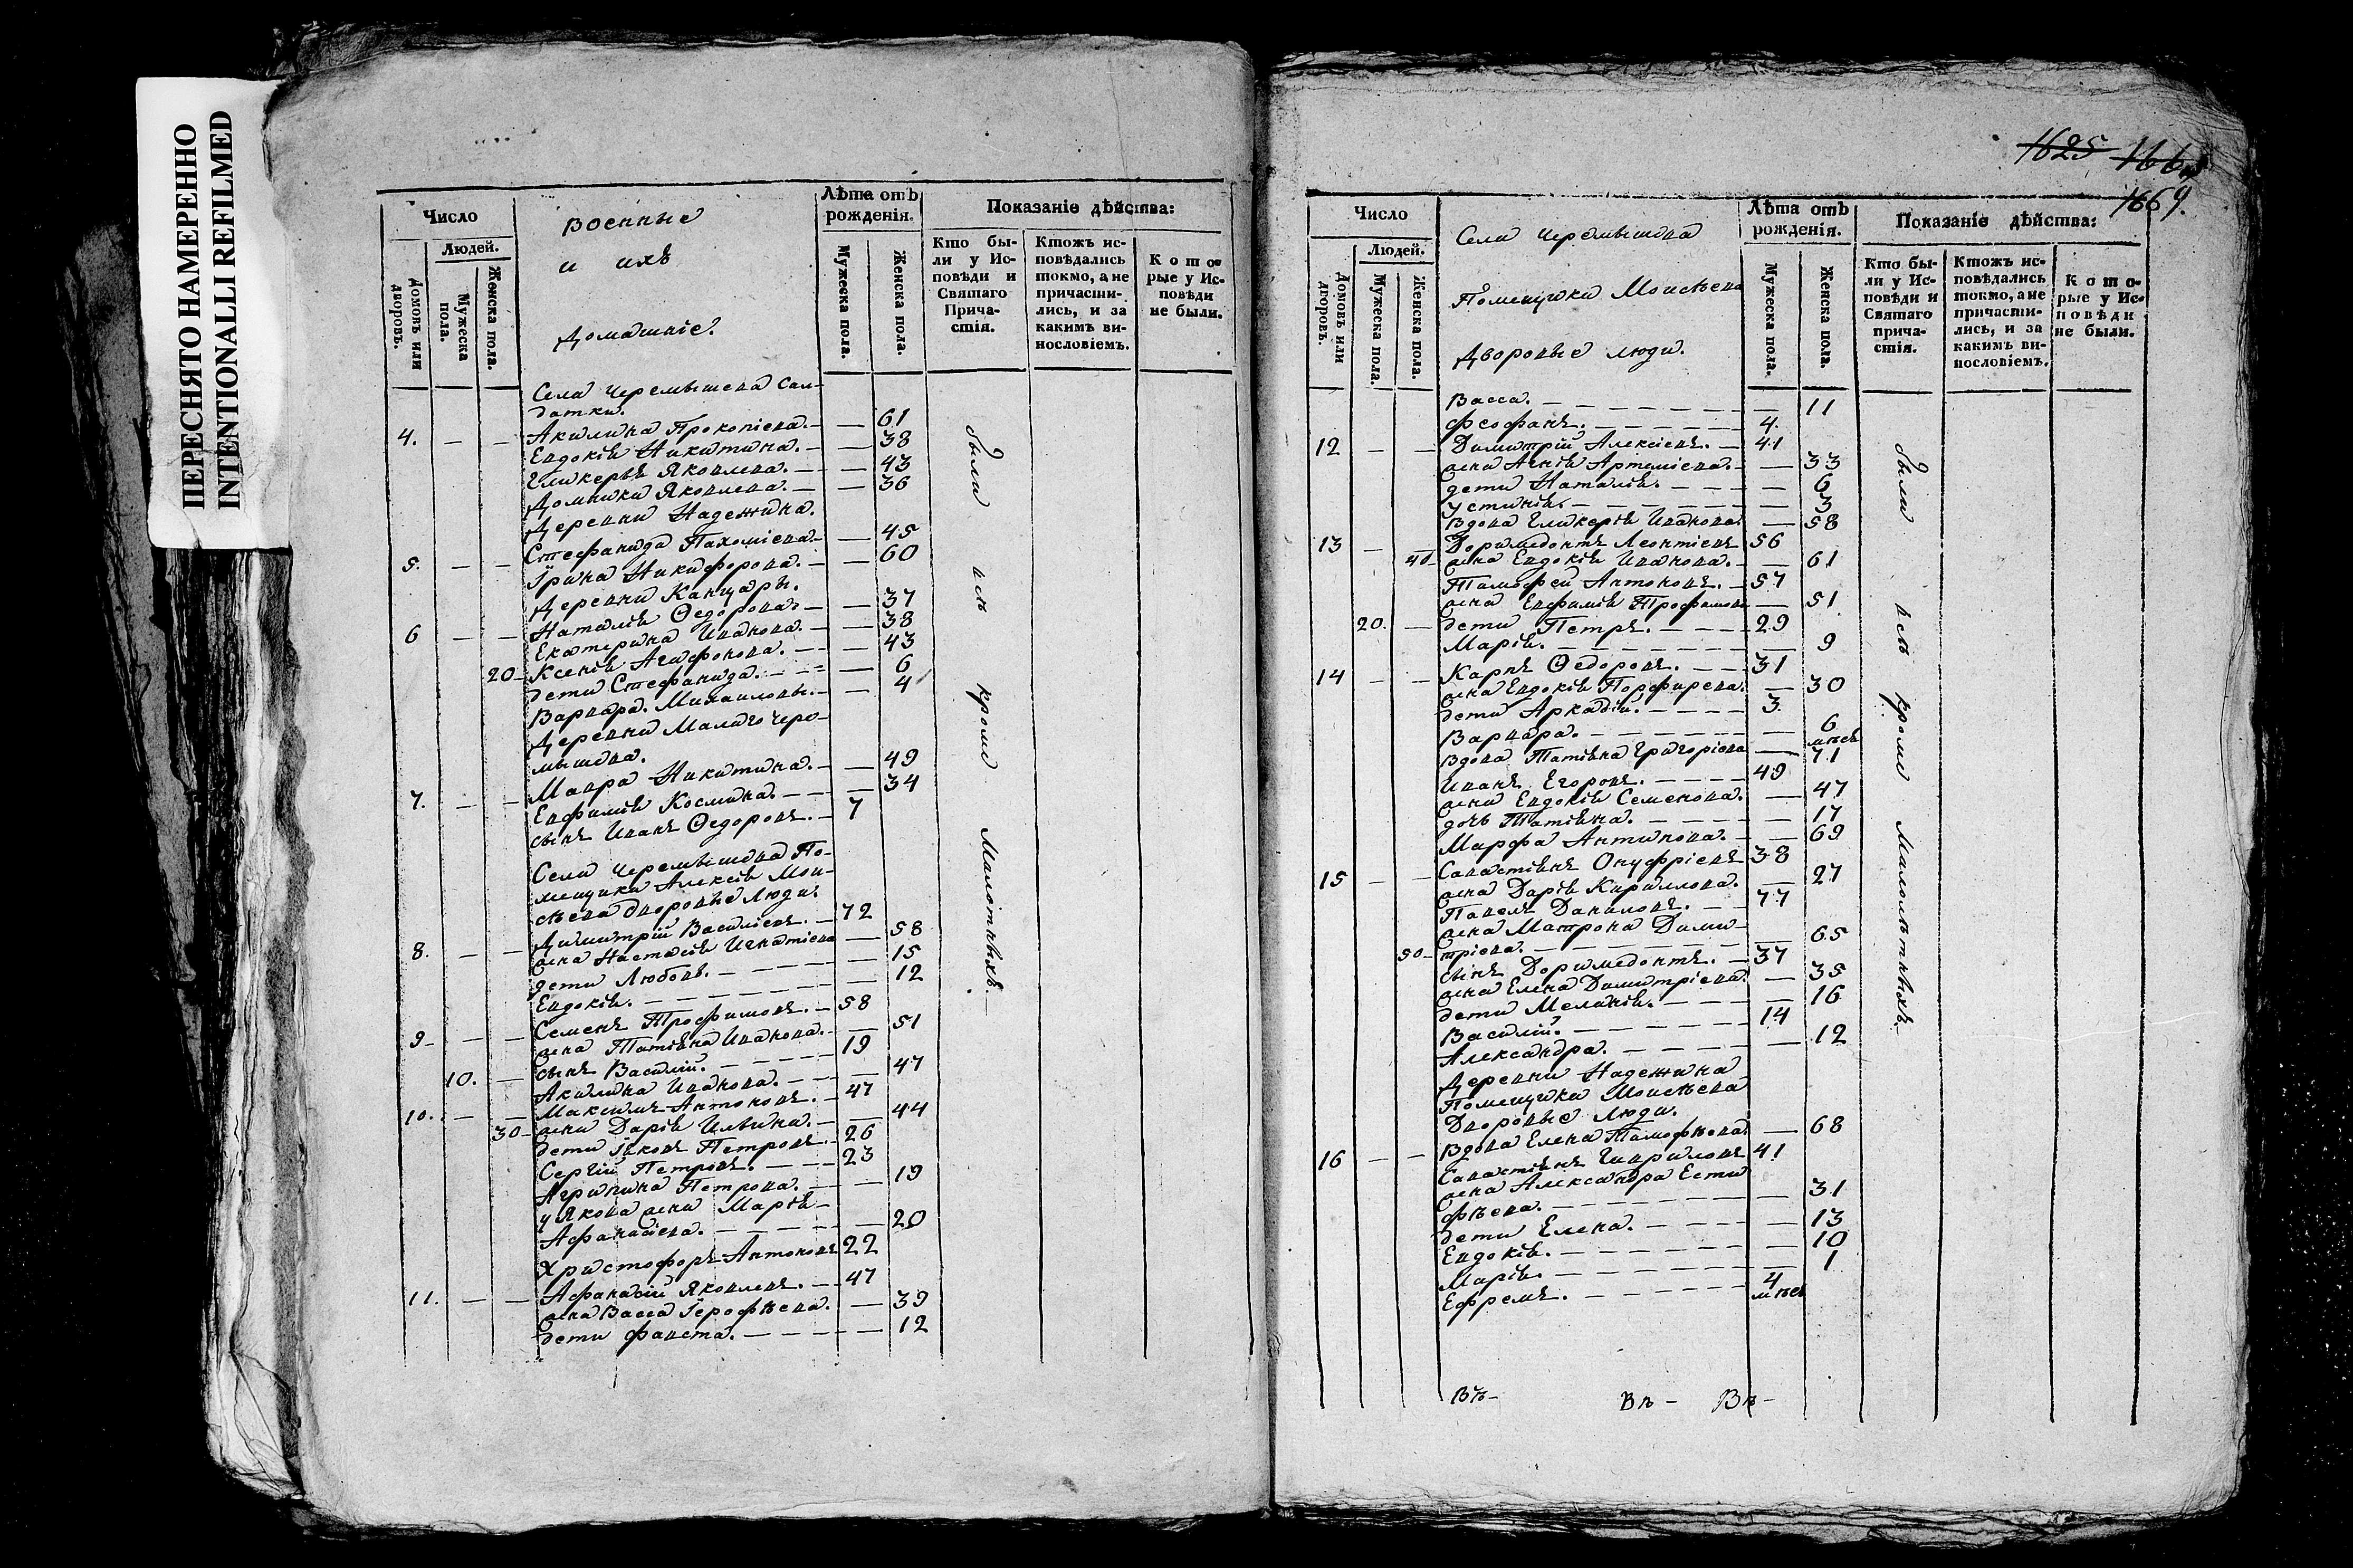 ПЕРЕСНЯТО НАМЕРЕННО
INTENTIONALLI REFILMED
Число
Людей.
Домовъ или дворовъ.
Мужеска пола.
Женска пола.
Военные
и ихъ
домашніе.
Лѣта отъ рожденія.
Мужеска пола.
Женска пола.
Показаніе дѣйства:
Кто были у Исповѣди и Святаго Причастія.
Ктожъ исповѣдались токмо, а не причастились, и за какимъ винословіемъ.
Которые у Исповѣди не были.
Села Черемышева Сал-
датки.
4. — — Акилина Прокопіева. — — 61
Евдокія Никитина. — — 38
Гликерья Яковлева. — — 43
Домника Яковлева. — — 36
Деревни Надежина.
Стефанида Пахоміева. — — 45
5. — — Ірина Никифорова. — — 60
Деревни Канцары.
Наталія Ѳедорова. — — 37
6 — — Екатерина Иванова. — — 38
Ксенія Агафонова. — — 43
20 дети Стефанида. — — 6
Варвара. Михаиловы. — — 4
Деревни Малаго Черо-
мышева.
Мавра Никитина. — — 49
7. — — Евфимія Космина. — — 34
сынъ Иванъ Ѳедоровъ. — 7
Села Черемышева По-
мещика Алексія Мои-
сѣева дворовые Люди.
Димитрій Василіевъ. — 72
8. — — жена Настасія Игнатіева — 58
дети Любовь. — — 15
Евдокія. — — 12
Семенъ Трофимовъ. — 58
9 — — жена Татіяна Иванова. — 51
сынъ Василій. — — 19
10. — Акилина Иванова. — — 47
10. — — Максимъ Антоновъ. — 47
30 жена Дарія Ильина. — — 44
дети Іяковъ Петровъ. 26
Сергій Петровъ. — — 23
Агрипина Петрова. — — 19
у Якова жена Марія
Афанасіева. — — 20
Христофоръ Антоновъ 22
11. — — Афанасій Яковлевъ. — 47
жена Васса Іерофѣева. — 39
дети Фавста. — — 12
были всѣ кромѣ малолѣтныхъ
1625 166
1669.
Число
Людей.
Домовъ или дворовъ.
Мужеска пола.
Женска пола.
Села Черемышева
Помещика Моисѣева
Дворовые люди.
Лѣта отъ рожденія.
Мужеска пола.
Женска пола.
Показаніе дѣйства:
Кто были у Исповѣди и Святаго причастія.
Ктожъ исповѣдались токмо, а не причастились, и за какимъ винословіемъ.
Которые у Исповѣди не были.
Васса. — — 11
Феофанъ. — — 4
12 — — Димитрій Алексіевъ. — 41
жена Агнія Артеміева. — 33
дети Наталія. — — 6
Устинія. — — 3
Вдова Гликерія Иванова. — 58
13 — — Доримедонтъ Леонтіевъ 56
40 жена Евдокія Иванова. — 61
Тимофей Антоновъ. — 57
жена Евфимія Трофимова — 51
20. — дети Петръ. — — 29
Марія. — — 9
14 — — Карпъ Ѳедоровъ. — — 31
жена Евдокія Порфирева. — 30
дети Аркадій. — — 3
Варвара. — — 6 мѣсе
Вдова Татіяна Григоріева — 71
Иванъ Егоровъ. — — 49
жена Евдокія Семенова. — 47
дочь Татіяна. — — 17
Марфа Антипова. — — 69
15 — — Савастіянъ Онуфріевъ 38
жена Дарія Кирилова. — 27
Павелъ Даниловъ. — — 77
жена Матрона Дими-
50 тріева. — — 65
сынъ Доримедонтъ. — 37
жена Елена Димитріева. — 35
дети Меланія. — — 16
Василій. — — 14
Александра. — — 12
Деревни Надежина
Помещика Моисѣева
Дворовые Люди.
Вдова Елена Тимофѣева. — 68
16 — — Савастіянъ Гавриловъ 41
жена Александра Ести
фѣева. — — 31
дети Елена. — — 13
Евдокія. — — 10
Марія. — — 1
Ефремъ. — — 4 мѣсе
были всѣ кромѣ малолѣтныхъ
Въ- Въ - Въ -